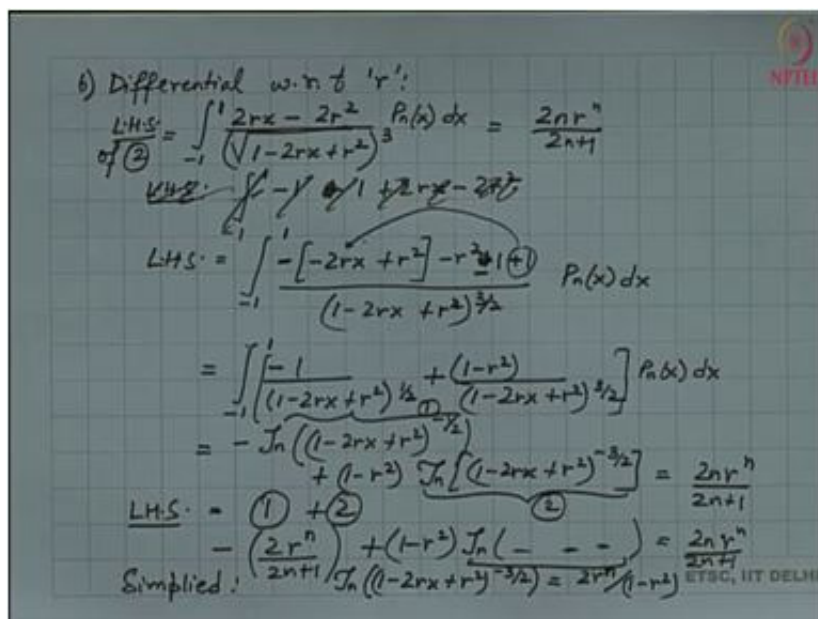 NPTEL
6) Differential w.r.t 'r':
L.H.S. of ② = ∫_{-1}^{1} (2rx - 2r²)/(√(1-2rx+r²))³ Pn(x) dx = 2nr^n/(2n+1)
L.H.S. = ∫_{-1}^{1} (-[-2rx + r²] - r² - 1 + 1)/(1-2rx+r²)^{3/2} Pn(x) dx
= ∫_{-1}^{1} [-1/(1-2rx+r²)^{1/2} + (1-r²)/(1-2rx+r²)^{3/2}] Pn(x) dx
= - Jn((1-2rx+r²)^{-1/2}) ①
+ (1-r²) Jn[(1-2rx+r²)^{-3/2}] ② = 2nr^n/(2n+1)
L.H.S. = ① + ②
- (2r^n/(2n+1)) + (1-r²) Jn( - - - ) = 2nr^n/(2n+1)
Simplied: Jn((1-2rx+r²)^{-3/2}) = 2r^n/(1-r²)
ETSC, IIT DELHI